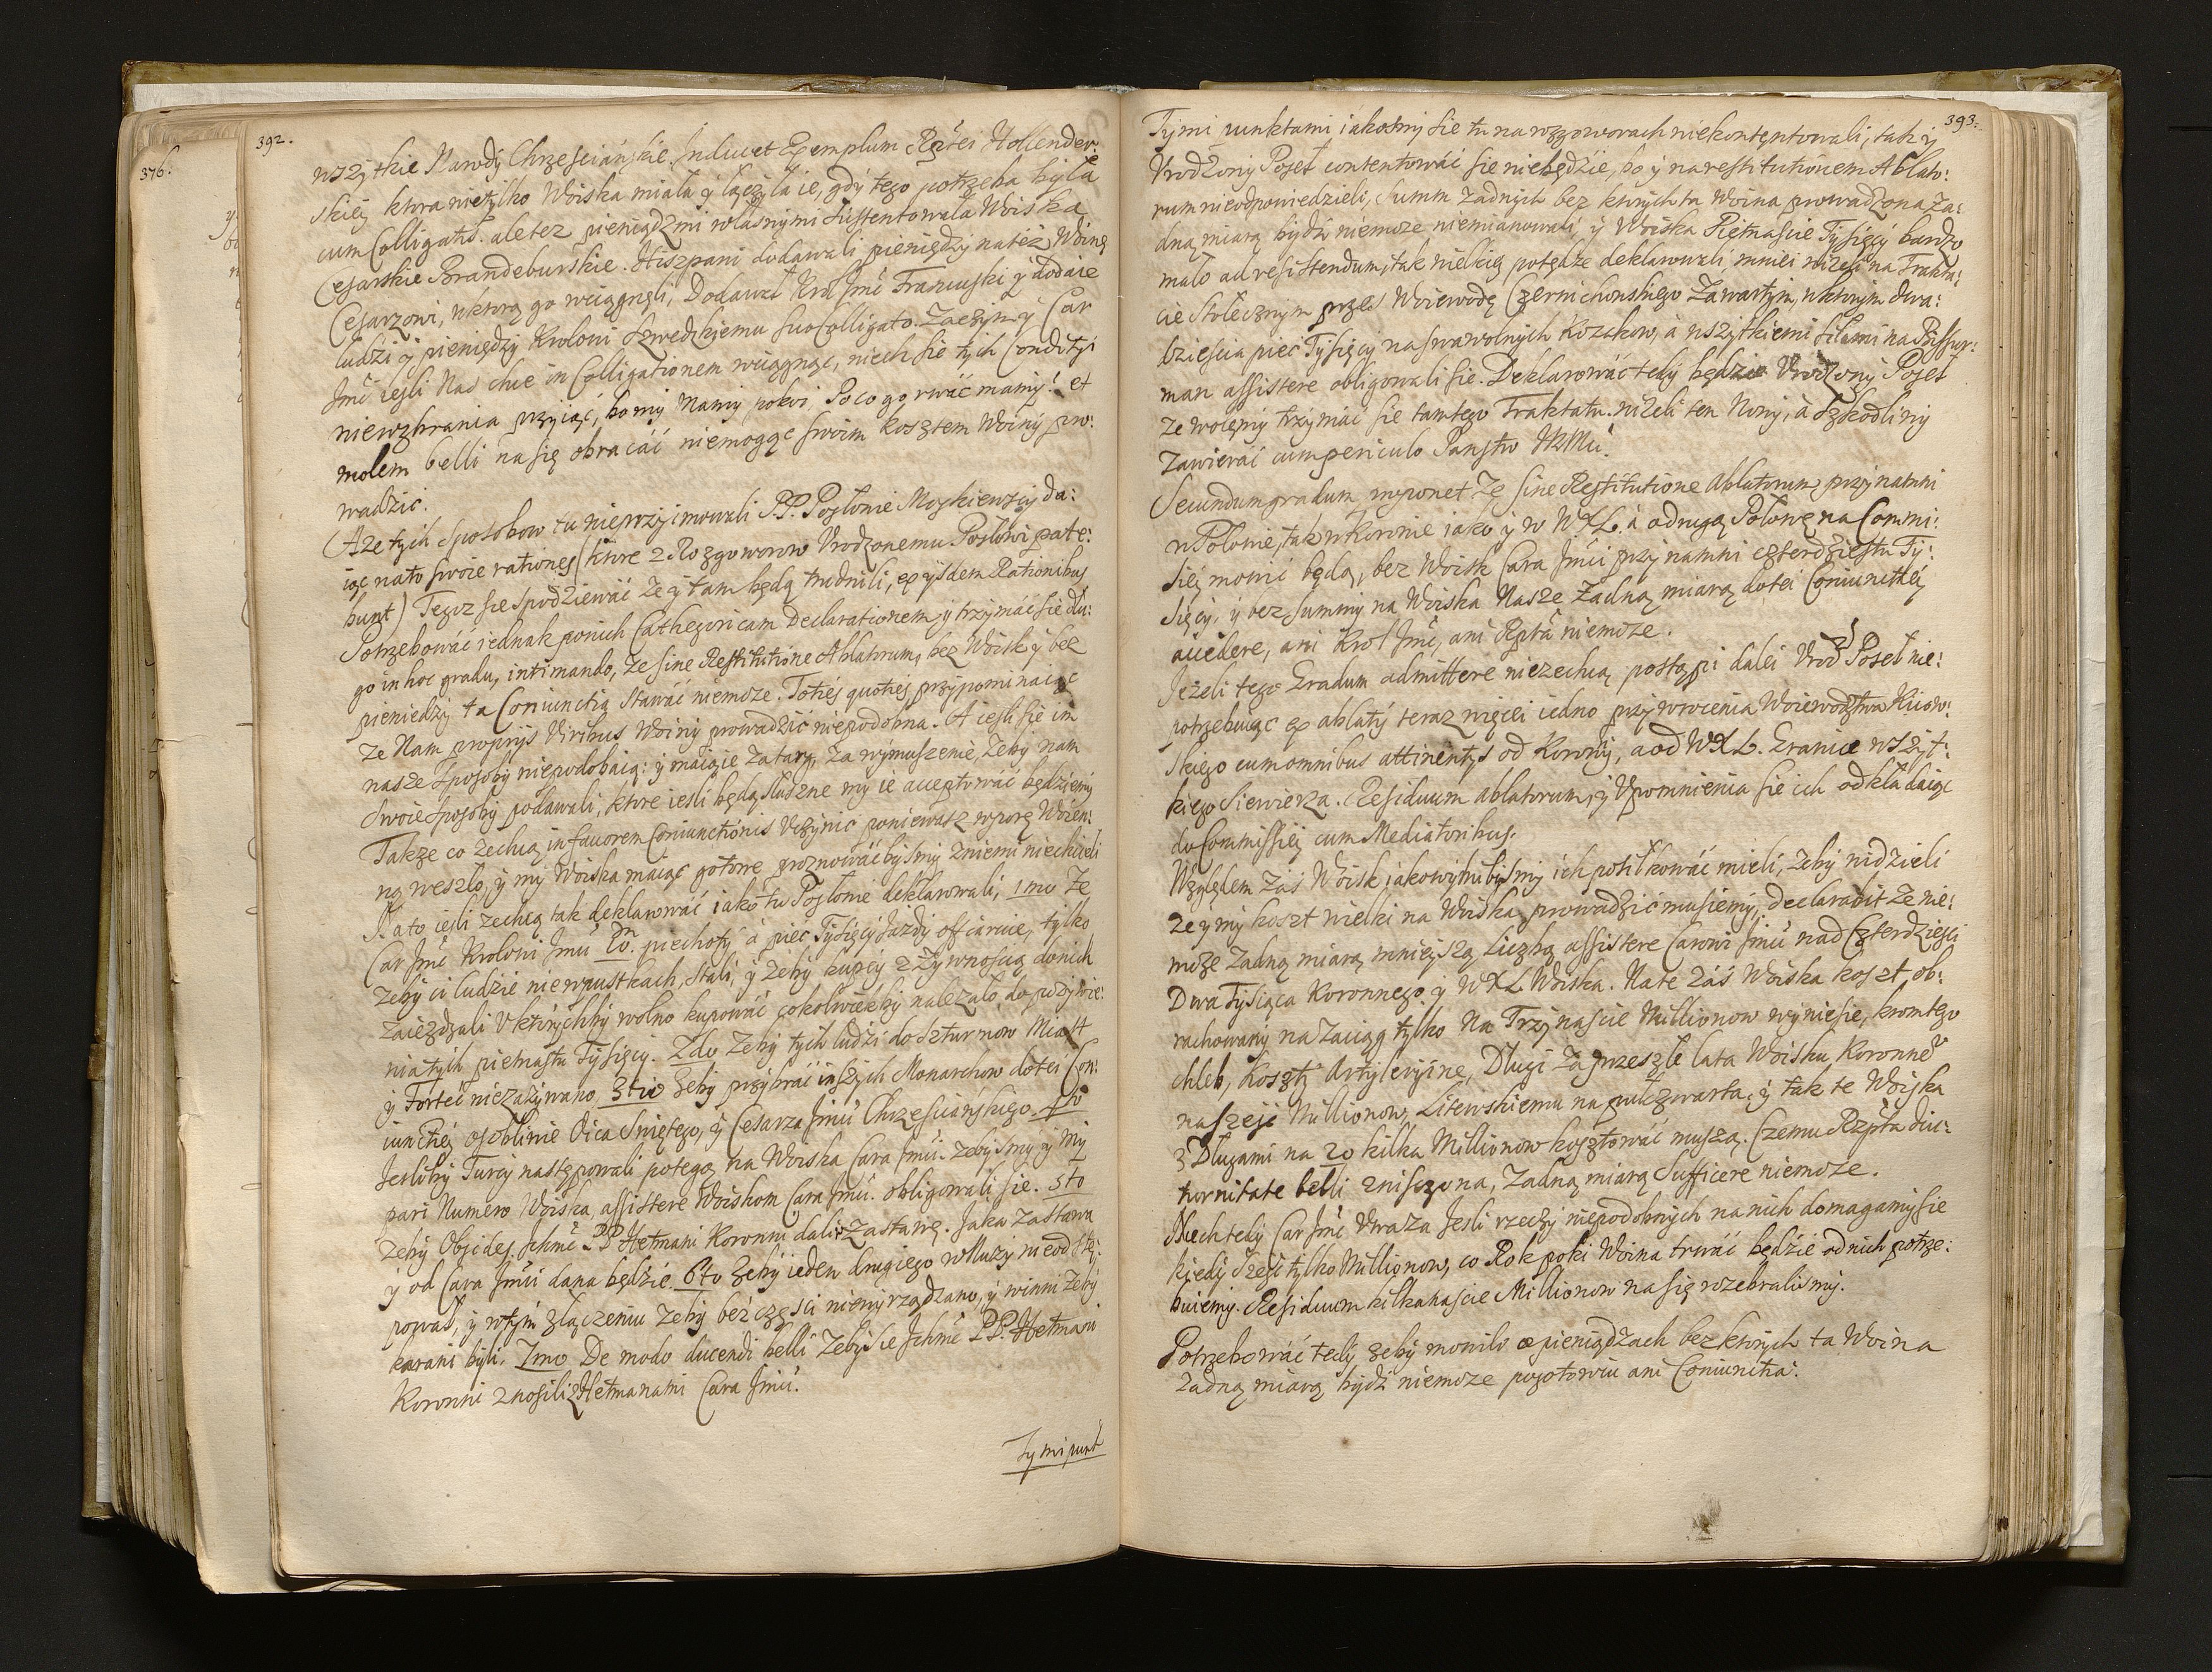 392.
wszytkie Narody Chrzesciańskie. Inducet Exemplum Rptei Hollender:
skiey ktora nietylko Woiska miała y łączyła ie, gdy tego potrzeba była
cum Colligatis. ale tez pieniądzmi własnymi sustentowała Woiska
Cesarskie Brandeburskie. Hiszpani dodawali pieniędzy na też Woinę
Cesarzowi, w ktorą go wciągnęli, Dodawał Krol Jmć Francuski y dodaie
ludzi y pieniędzy Krolowi Szwedzkiemu suo Colligato. Zaczym y Car
Jmć iesli Nas chce in Colligationem wciągnąc, niech się tych Conditÿi
niewzbrania przyiąć, bo my Mamy pokoi, Po co go rwać mamy? et
molem belli na się obracáć niemogąc swoim kosztem Woiny pro:
wadzić.
A że tych Sposobow tu nieprzyimowali P.P. Posłowie Moskiewscy da:
iąc na to swoie rationes (ktore z Rozgoworow Urodzonemu Posłowi pate:
bunt) Tegoz się spodziewáć że y tam będą trudnili, ex ijsdem Rationibus
Potrzebowáć iednak po nich Cathegoricam Declarationem, y trzymáć się dłu:
go in hoc gradu, intimando, że sine Restitutione Ablatorum, bez Woisk y bez
pieniedzy ta Coniunctia stawáć niemoze. Toties quoties przypominaiąc
że Nam proprijs Viribus Woiny prowadzić niepodobna. A iesli się im
nasze sposoby niepodobaią: y máią ie za targ, za wymuszenie, żeby nam
swoie sposoby podawali, ktore iesli będą słuszne my ie acceptowáć będziemy
Także co zechcą in favorem Coniunctionis Uczynic poniewasz w porę Woien:
ną weszło, y my Woiska máiąc gotowe proznowáć bysmy z niemi niechcieli
A to iesli zechcą tak deklarowáć iako tu Posłowie deklarowali, 1mo Ze
Car Jmć Krolowi Jmći Xm. piechoty á pięc Tysięcy Jazdy offiaruie, tylko
żeby ci ludzie nie w pustkach, stali, y żeby kupcy z Żywnoscią do nich
zaiezdzali U ktorychby wolno kupowáć cokolwiekby nalezało do pozywie:
nia tych pietnastu Tysięcy. 2do żeby tych ludzi do szturmow Miast
y Forteć niezażywano, 3tio żeby przybráć inszych Monarchow do tei Con:
iunctiey osobliwie Oica Swiętego, y Cesarza Jmći Chrzescianskiego. 4to
Jesliby Turcy następowali potęgą na Woiska Cara Jmći. żebysmy y My
pari Numero Woiska, assistere Woiskom Cara Jmći. obligowali się. 5to
żeby Obsides. Ichmć PP. Hetmani Koronni dali w zastawę. Jaka zastawa
y od Cara Jmći dana będzie. 6to żeby ieden drugiego w tłuszy nieodstę:
pował, y w tym złączeniu żeby bez częsci niewyrządzano, y winni żeby
karani byli. 7mo De modo ducendi belli żeby się Ichmć PP. Hetmani
Koronni znosili z Hetmanami Cara Jmći.
Tymi punk
376.
393.
Tymi punktami iákosmy się tu na rozgoworach niekontentowali, tak y
Urodzony Poseł contentowáć się niebędzie, bo y na restitutionem Ablato:
rum nieodpowiedzieli, Summ żadnych bez ktorych ta Woina prowadzona ża:
dną miarą bydź niemoze niemianowali, y Woiska Pietnascie Tysięcy bardzo
mało ad resistendum, tak wielkiey potędze deklarowali, mniei niżeli na Trakta:
cie Stolecznym przez Woiewodę Czernichowskiego Zawartym, w ktorym dwa:
dziescia pięc Tysięcy na swawolnych Kozakow, á wszytkiemi siłami na Bissur:
man assistere obligowali się. Deklarowáć tedy będzie Urodzony Poseł
że wolemy trzymáć się tamtego Traktatu. niżeli ten Nowy, á szkodliwy
zawieráć cum periculo Państw JKMci.
Secundum gradum movet że sine Restitutione Ablatorum przynamni
w Połowie, tak w Koronie iako y w WXL. á o drugą Połowę na Commi:
siey mowić będą, bez Woisk Cara Jmći przynamni czterdziestu Ty:
sięcy, y bez summy na Woiska Nasze żadną miarą do tei Coniunctiey
accedere, ani Krol Jmć, ani Rpta niemoze.
Jeżeli tego Gradum admittere niezechcą, postąpi dalei Urodz. Poseł nie:
potrzebuiąc ex ablatÿ teraz więcei iedno przywrocenia Woiewodztwa Kiiow:
skiego cum omnibus attinentÿs od Korony, a od WXL. Granice wszyt:
kiego Siewierza. Residuum ablatorum, y Upomnienia się ich odkładaiąc
do Commissiey cum Mediatoribus.
Względem záś Woisk iakowychbysmy ich posiłkowáć mieli, żeby widzieli
że y my koszt wielki na Woiska prowadzić musiemy, declarabit że nie:
może żadną miarą mnieyszą liczbą assistere Carowi Jmći nad Czterdziesci
Dwa Tysiąca Koronnego y WXL Woiska. Na te záś Woiska koszt ob:
rachowany na zaciąg tylko na Trzynascie Millionow wyniesie, krom tego
chleb, Koszty Artyleryine, Dlugi za przeszłe lata Woisku Koronne
na szesc Millionow, Litewskiemu na pułczwarta, y tak te Woiska
z Dlugami na 20 kilka Millionow kosztować muszą. Czemu Rzpta diu:
turnitate belli zniszczona, żadną miarą Sufficere niemoze.
Niech tedy Car Jmć Uważa Jesli rzeczy niepodobnych na nich domagamy się
kiedy szesc tylko Millionow, co Rok poki Woina trwáć będzie od nich potrze:
buiemy. Residuum kilkanascie Millionow na się wzebralismy.
Potrzebowáć tedy żeby mowili o pieniądzach bez ktorych ta Woina
żadną miarą bydź niemoze pogotowiu ani Coniunctia.